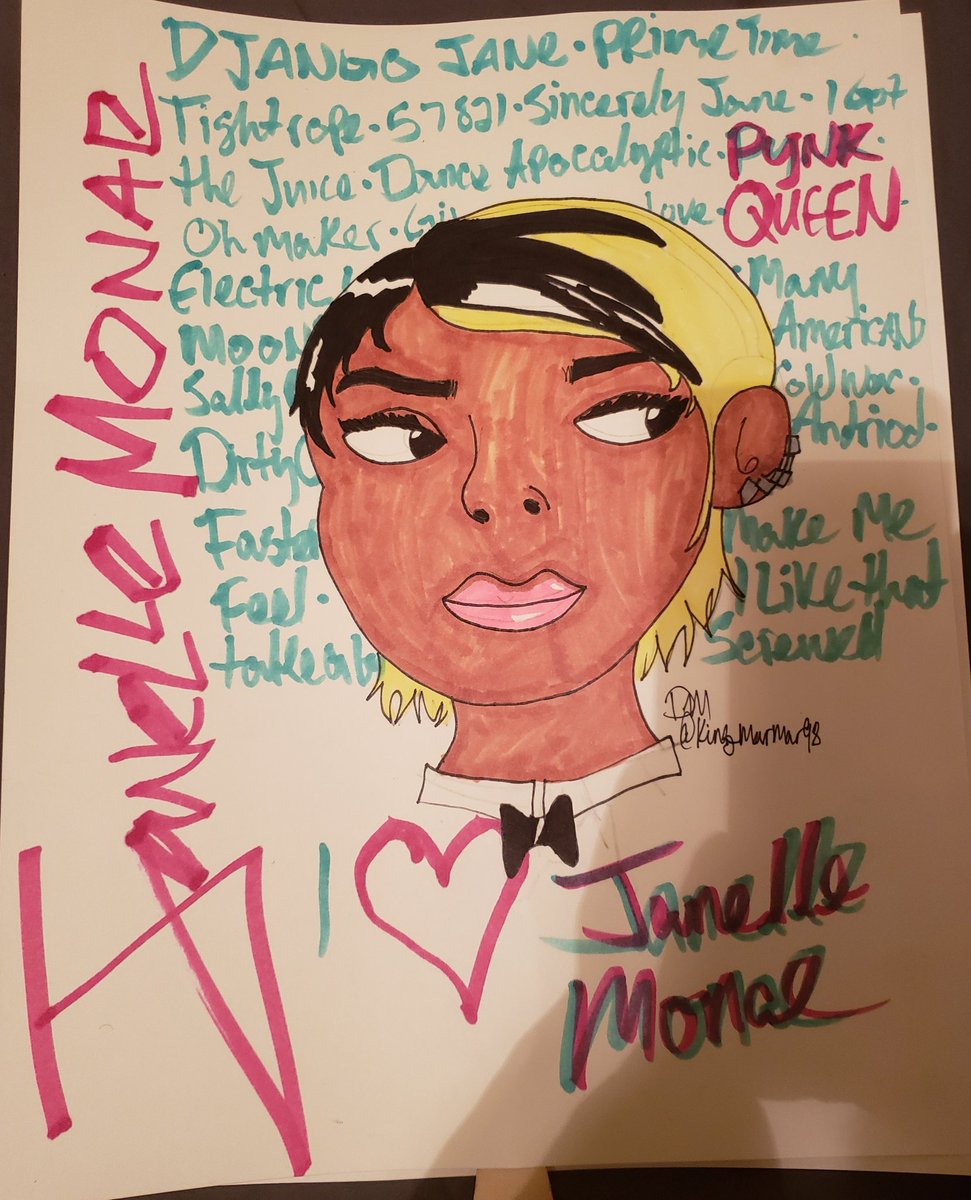 DJANGO JANE · Prime Time ·
Tightrope · 57821 · Sincerely Jane · I Got
the Juice · Dance Apocalyptic · PYNK ·
Oh Maker · Love · QUEEN ·
Electric Many
Moon American
Sally Cold war ·
Dirty Andriod ·
Make Me
Feel · I Like that
Screwed
JANELLE MONAE
DM
@King_MarMar98
I
Janelle
Monae